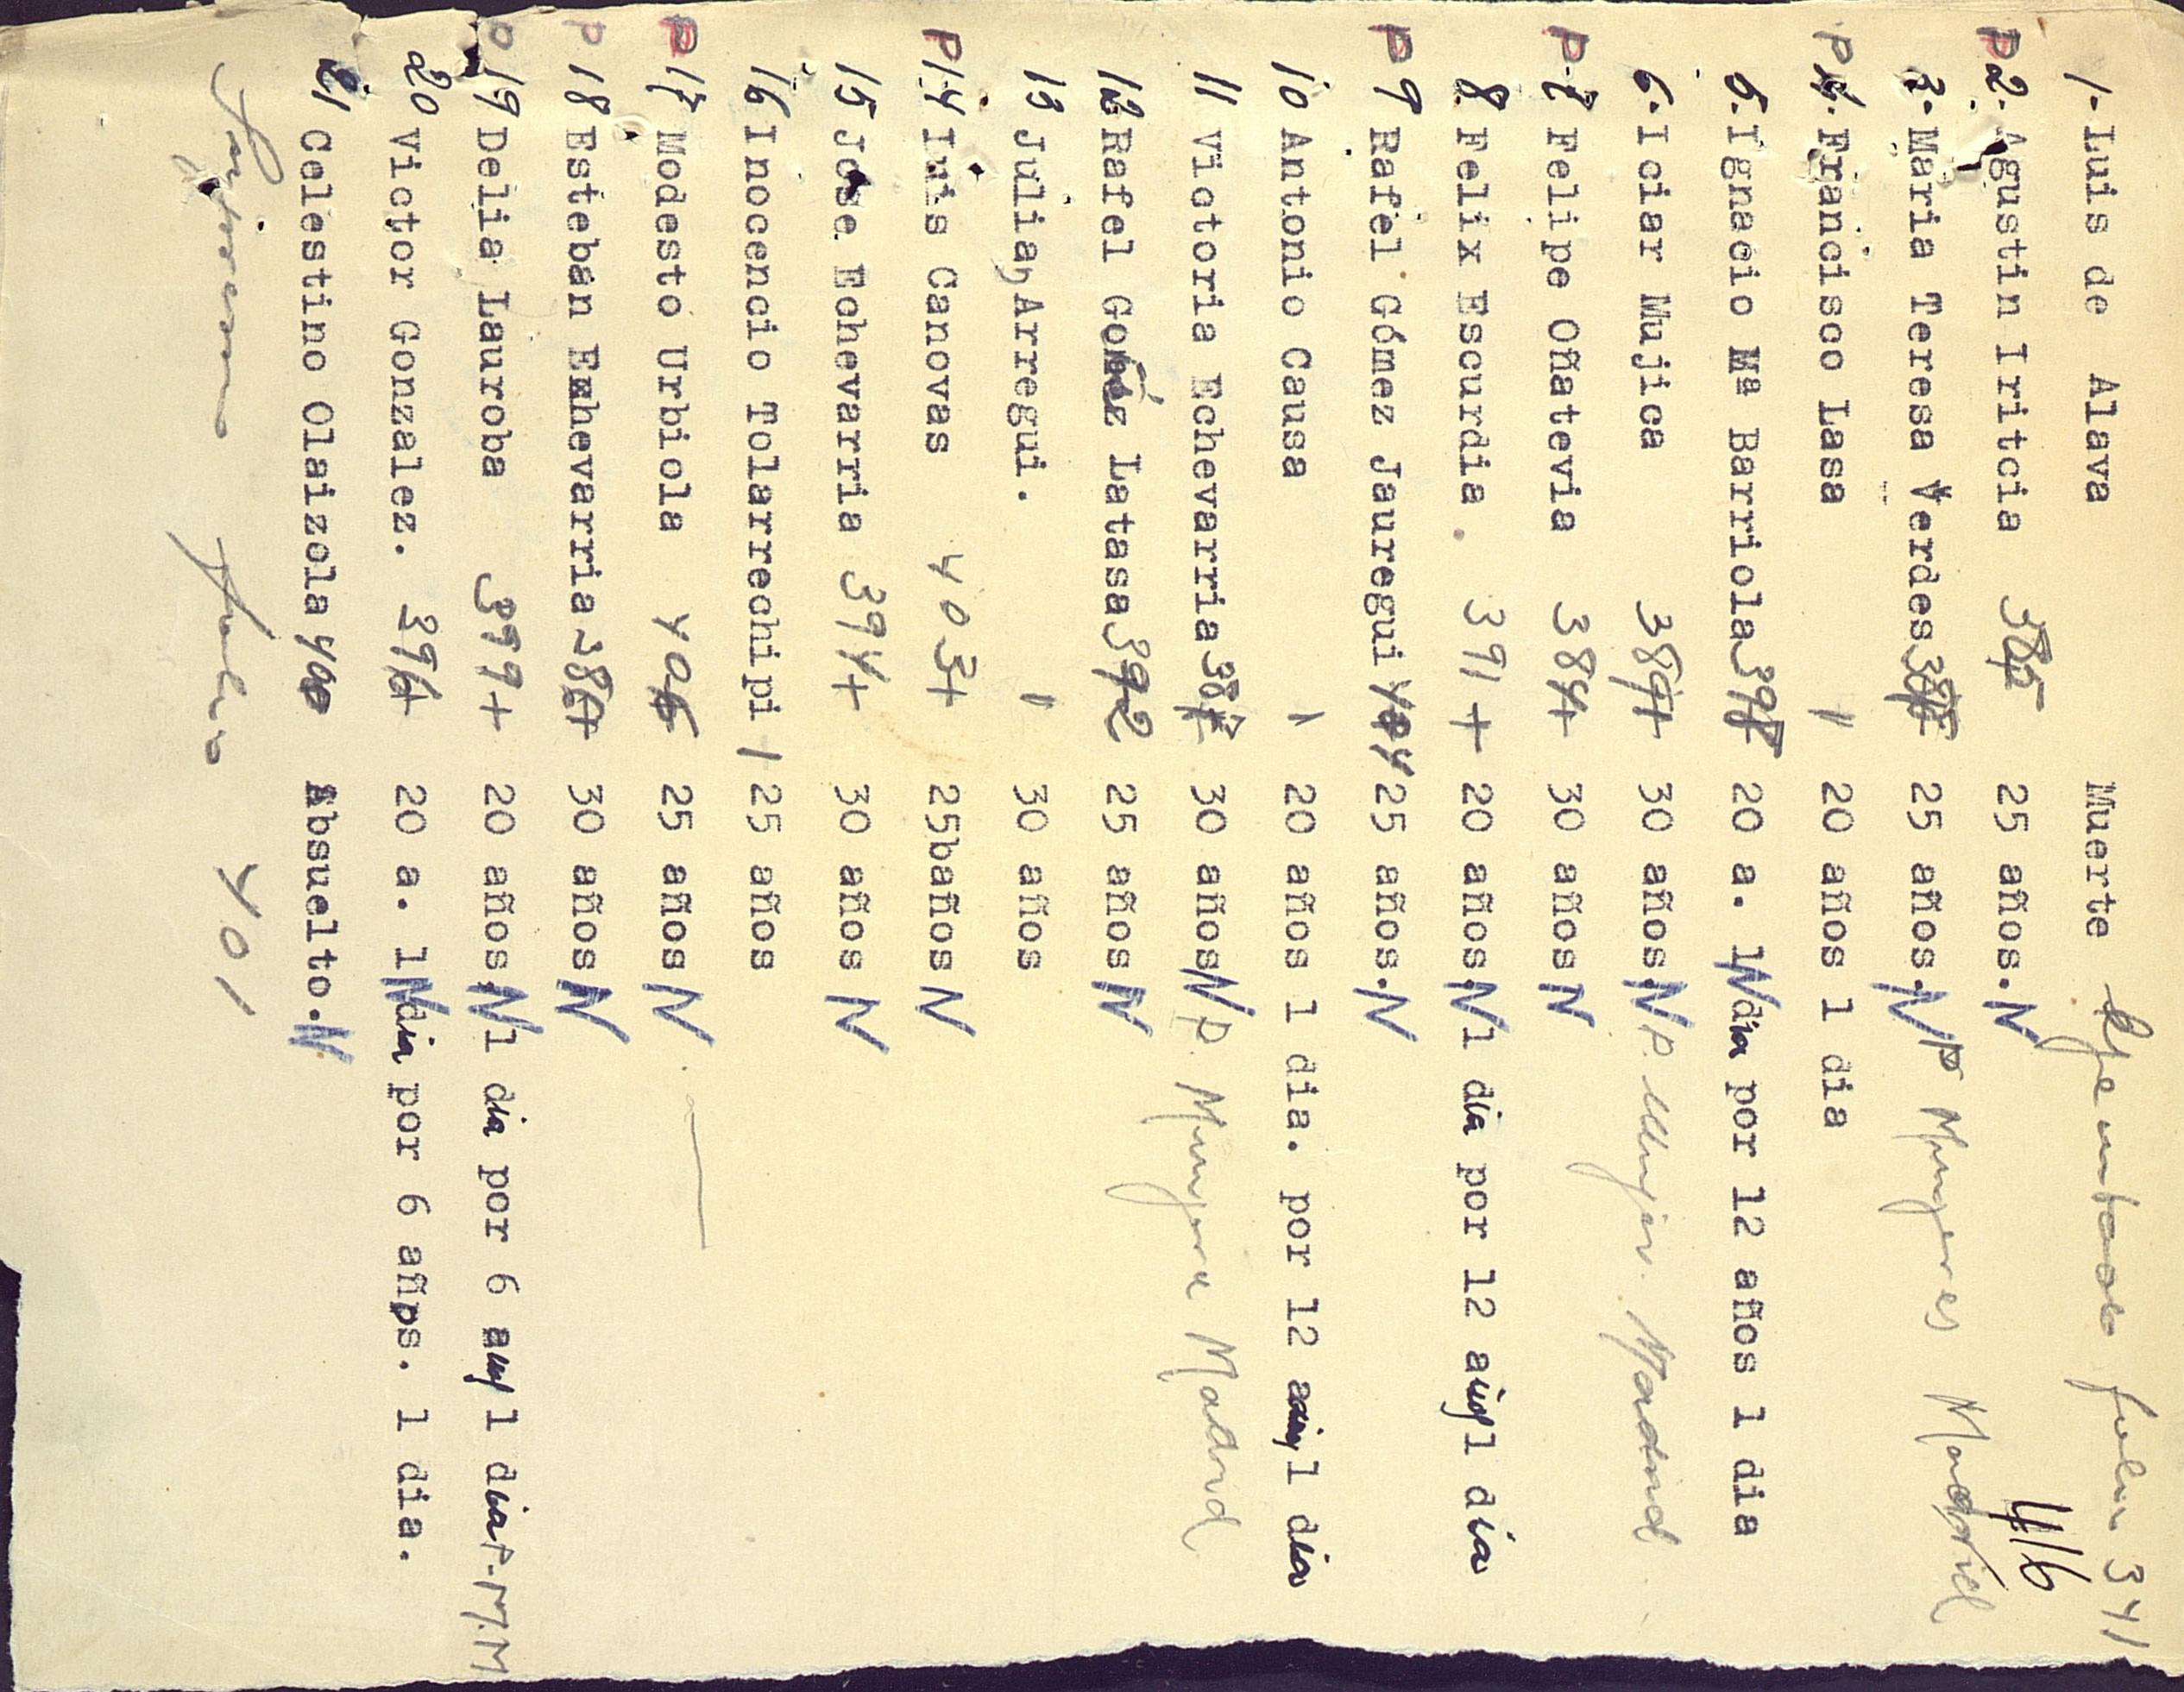 1. Luis de Alava Muerte Ejecutado folio 341
416
P 2. Agustin Iritcia 385 25 años. N
3. Maria Teresa Verdes 25 años. N P Mugeres Madrid
P 4. Francisco Lasa 20 años 1 dia
5. Ignacio Mª Barriola 20 a. 1 N dia por 12 años 1 dia
6. Iciar Mujica 389+ 30 años. N P. Mujer. Madrid
P 7 Felipe Oñatevia 384+ 30 años N
8 Felix Escurdia 391 + 20 años. N 1 dia por 12 años 1 día
P 9 Rafel Gómez Jauregui 404 25 años. N
10 Antonio Causa 20 años 1 dia. por 12 años 1 dia
11 Victoria Echevarria 30 años N P. Mugere Madrid
12 Rafel Goméz Latasa 392 25 años N
13 Julia, Arregui. 30 años
P 14 Luis Canovas 403+ 25baños N
15 Jose Echevarria 394+ 30 años N
16 Inocencio Tolarrechipi 25 años
P 17 Modesto Urbiola 405 25 años N
P 18 Esteban Echevarria 30 años N
P 19 Delia Lauroba 399+ 20 años. N 1 dia por 6 años 1 dia P.M.M
20 Victor Gonzalez. 396+ 20 a. 1 N dia por 6 años. 1 dia.
21 Celestino Olaizola 400 Absuelto. N
401